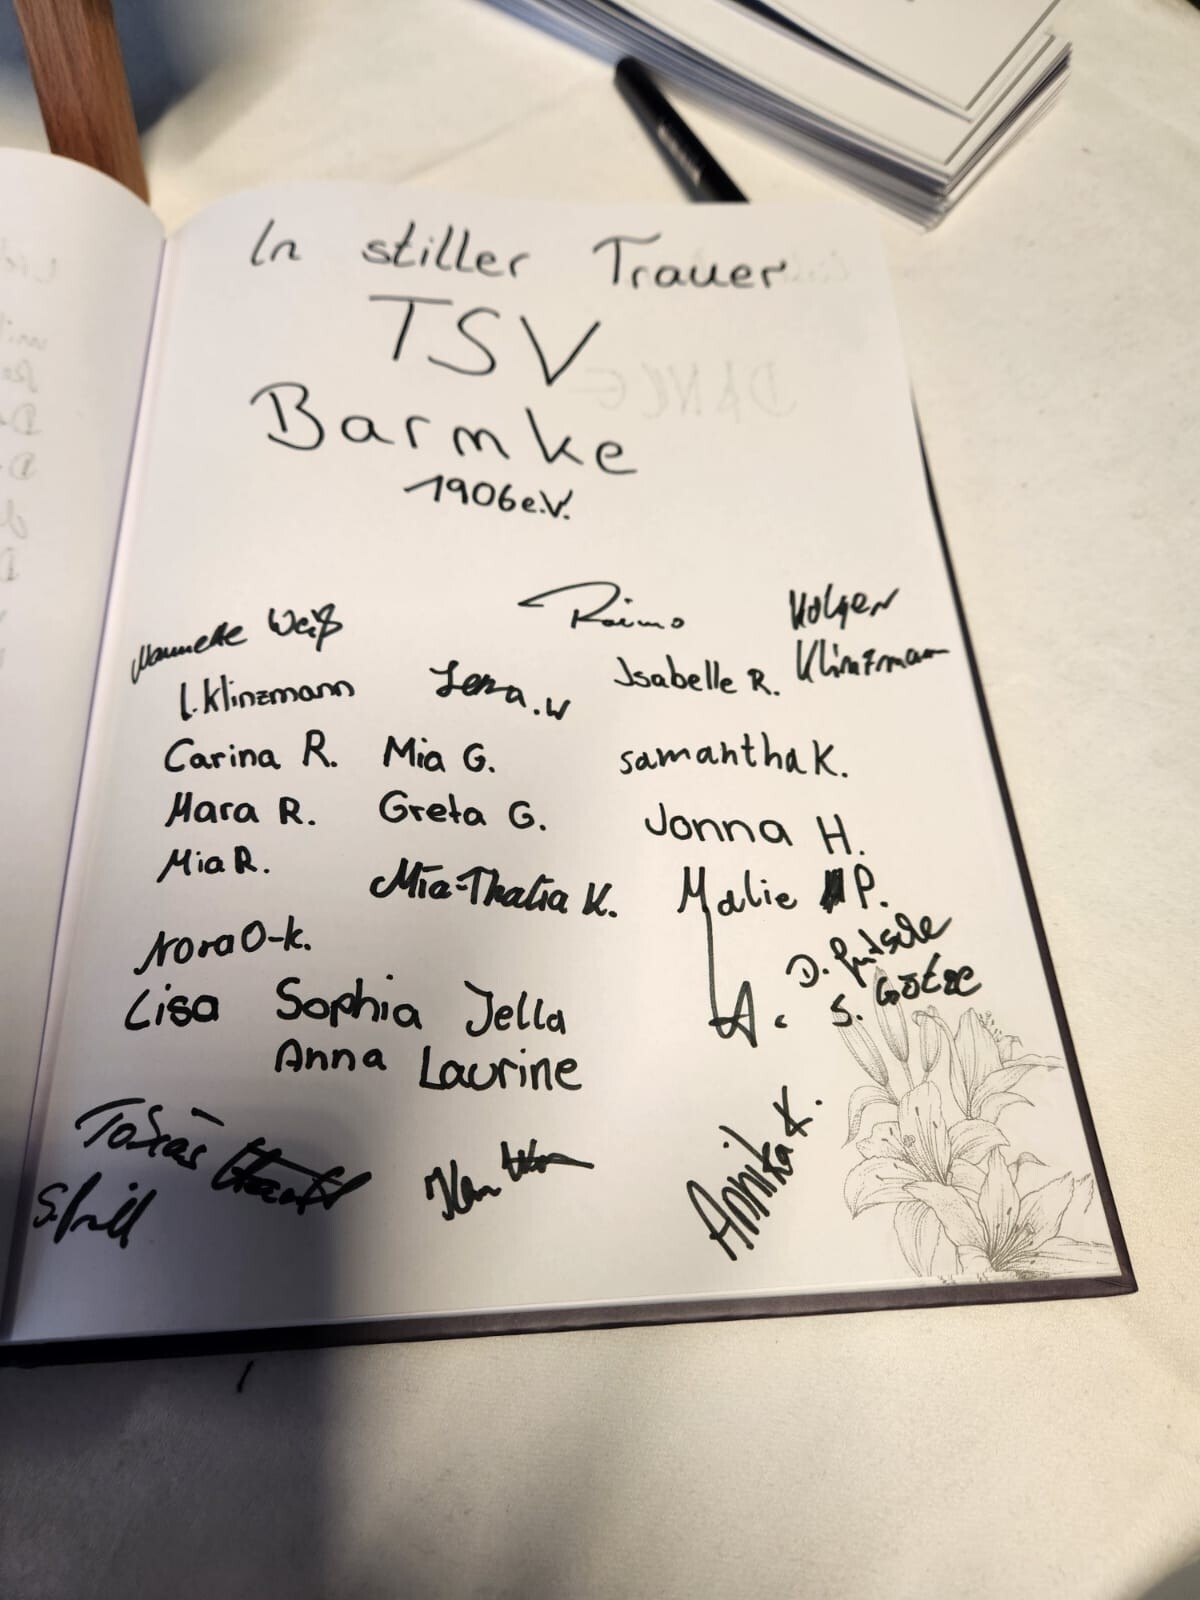 In stiller Trauer
TSV
Barmke
1906 e.V.
Weiß
Raimo
Holger
Klinzmann
L. Klinzmann
Lena.W
Isabelle R.
Carina R.
Mia G.
samantha K.
Mara R.
Greta G.
Jonna H.
Mia R.
Mia-Thalia K.
Malie P.
Nora O-K.
D.
S. Götze
Lisa
Sophia
Jella
A.
Anna
Laurine
Tobias
Annika K.
DANCE